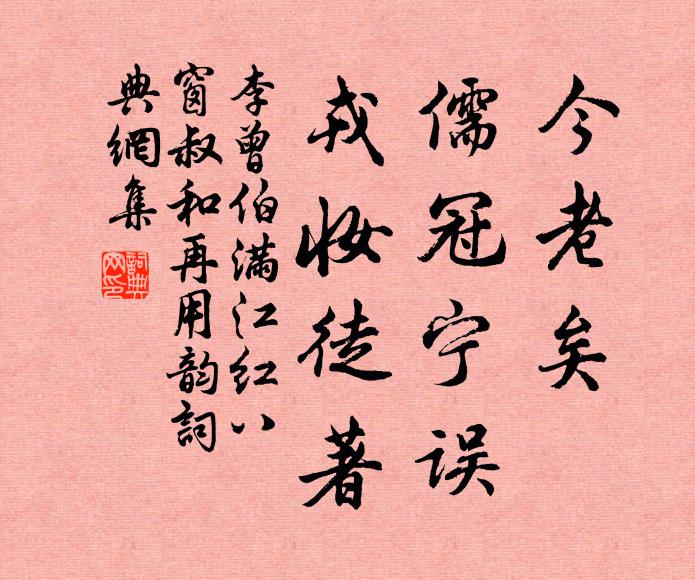 今老矣
儒冠宁误
戎妆徒著
李曾伯满江红八
窗叔和再用韵詞
典網集
詞典网印